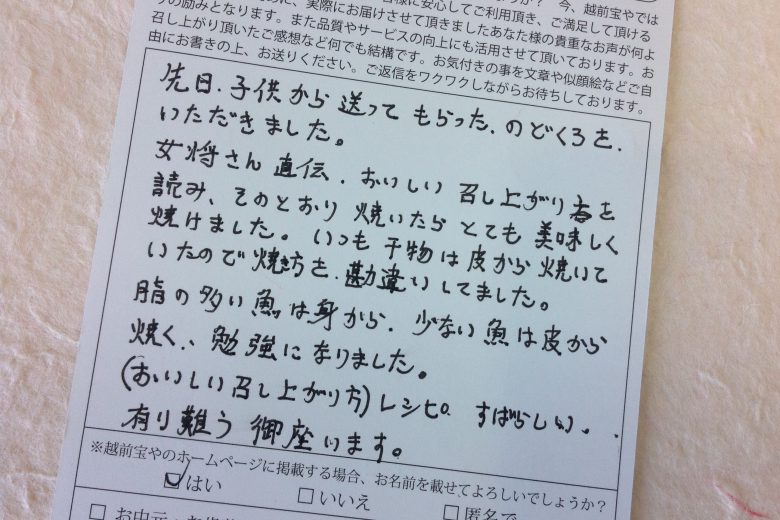 客様に安心してご利用頂き、ご満足して頂ける
実際にお届けさせて頂きましたあなた様の貴重なお声が何よ
りの励みとなります。また品質やサービスの向上にも活用させて頂いております。お
召し上がり頂いたご感想など何でも結構です。お気付きの事を文章や似顔絵などご自
由にお書きの上、お送りください。ご返信をワクワクしながらお待ちしております。
先日、子供から送ってもらった、のどくろを、
いただきました。
女将さん直伝、おいしい召し上がり方を
読み、そのとおり焼いたらとても美味しく
焼けました。いつも干物は皮から焼いて
いたので焼き方を、勘違いしてました。
脂の多い魚は身から、少ない魚は皮から
焼く、、勉強になりました。
(おいしい召し上がり方)レシピ、すばらしい、、
有り難う御座います。
※越前宝やのホームページに掲載する場合、お名前を載せてよろしいでしょうか?
はい いいえ 匿名で